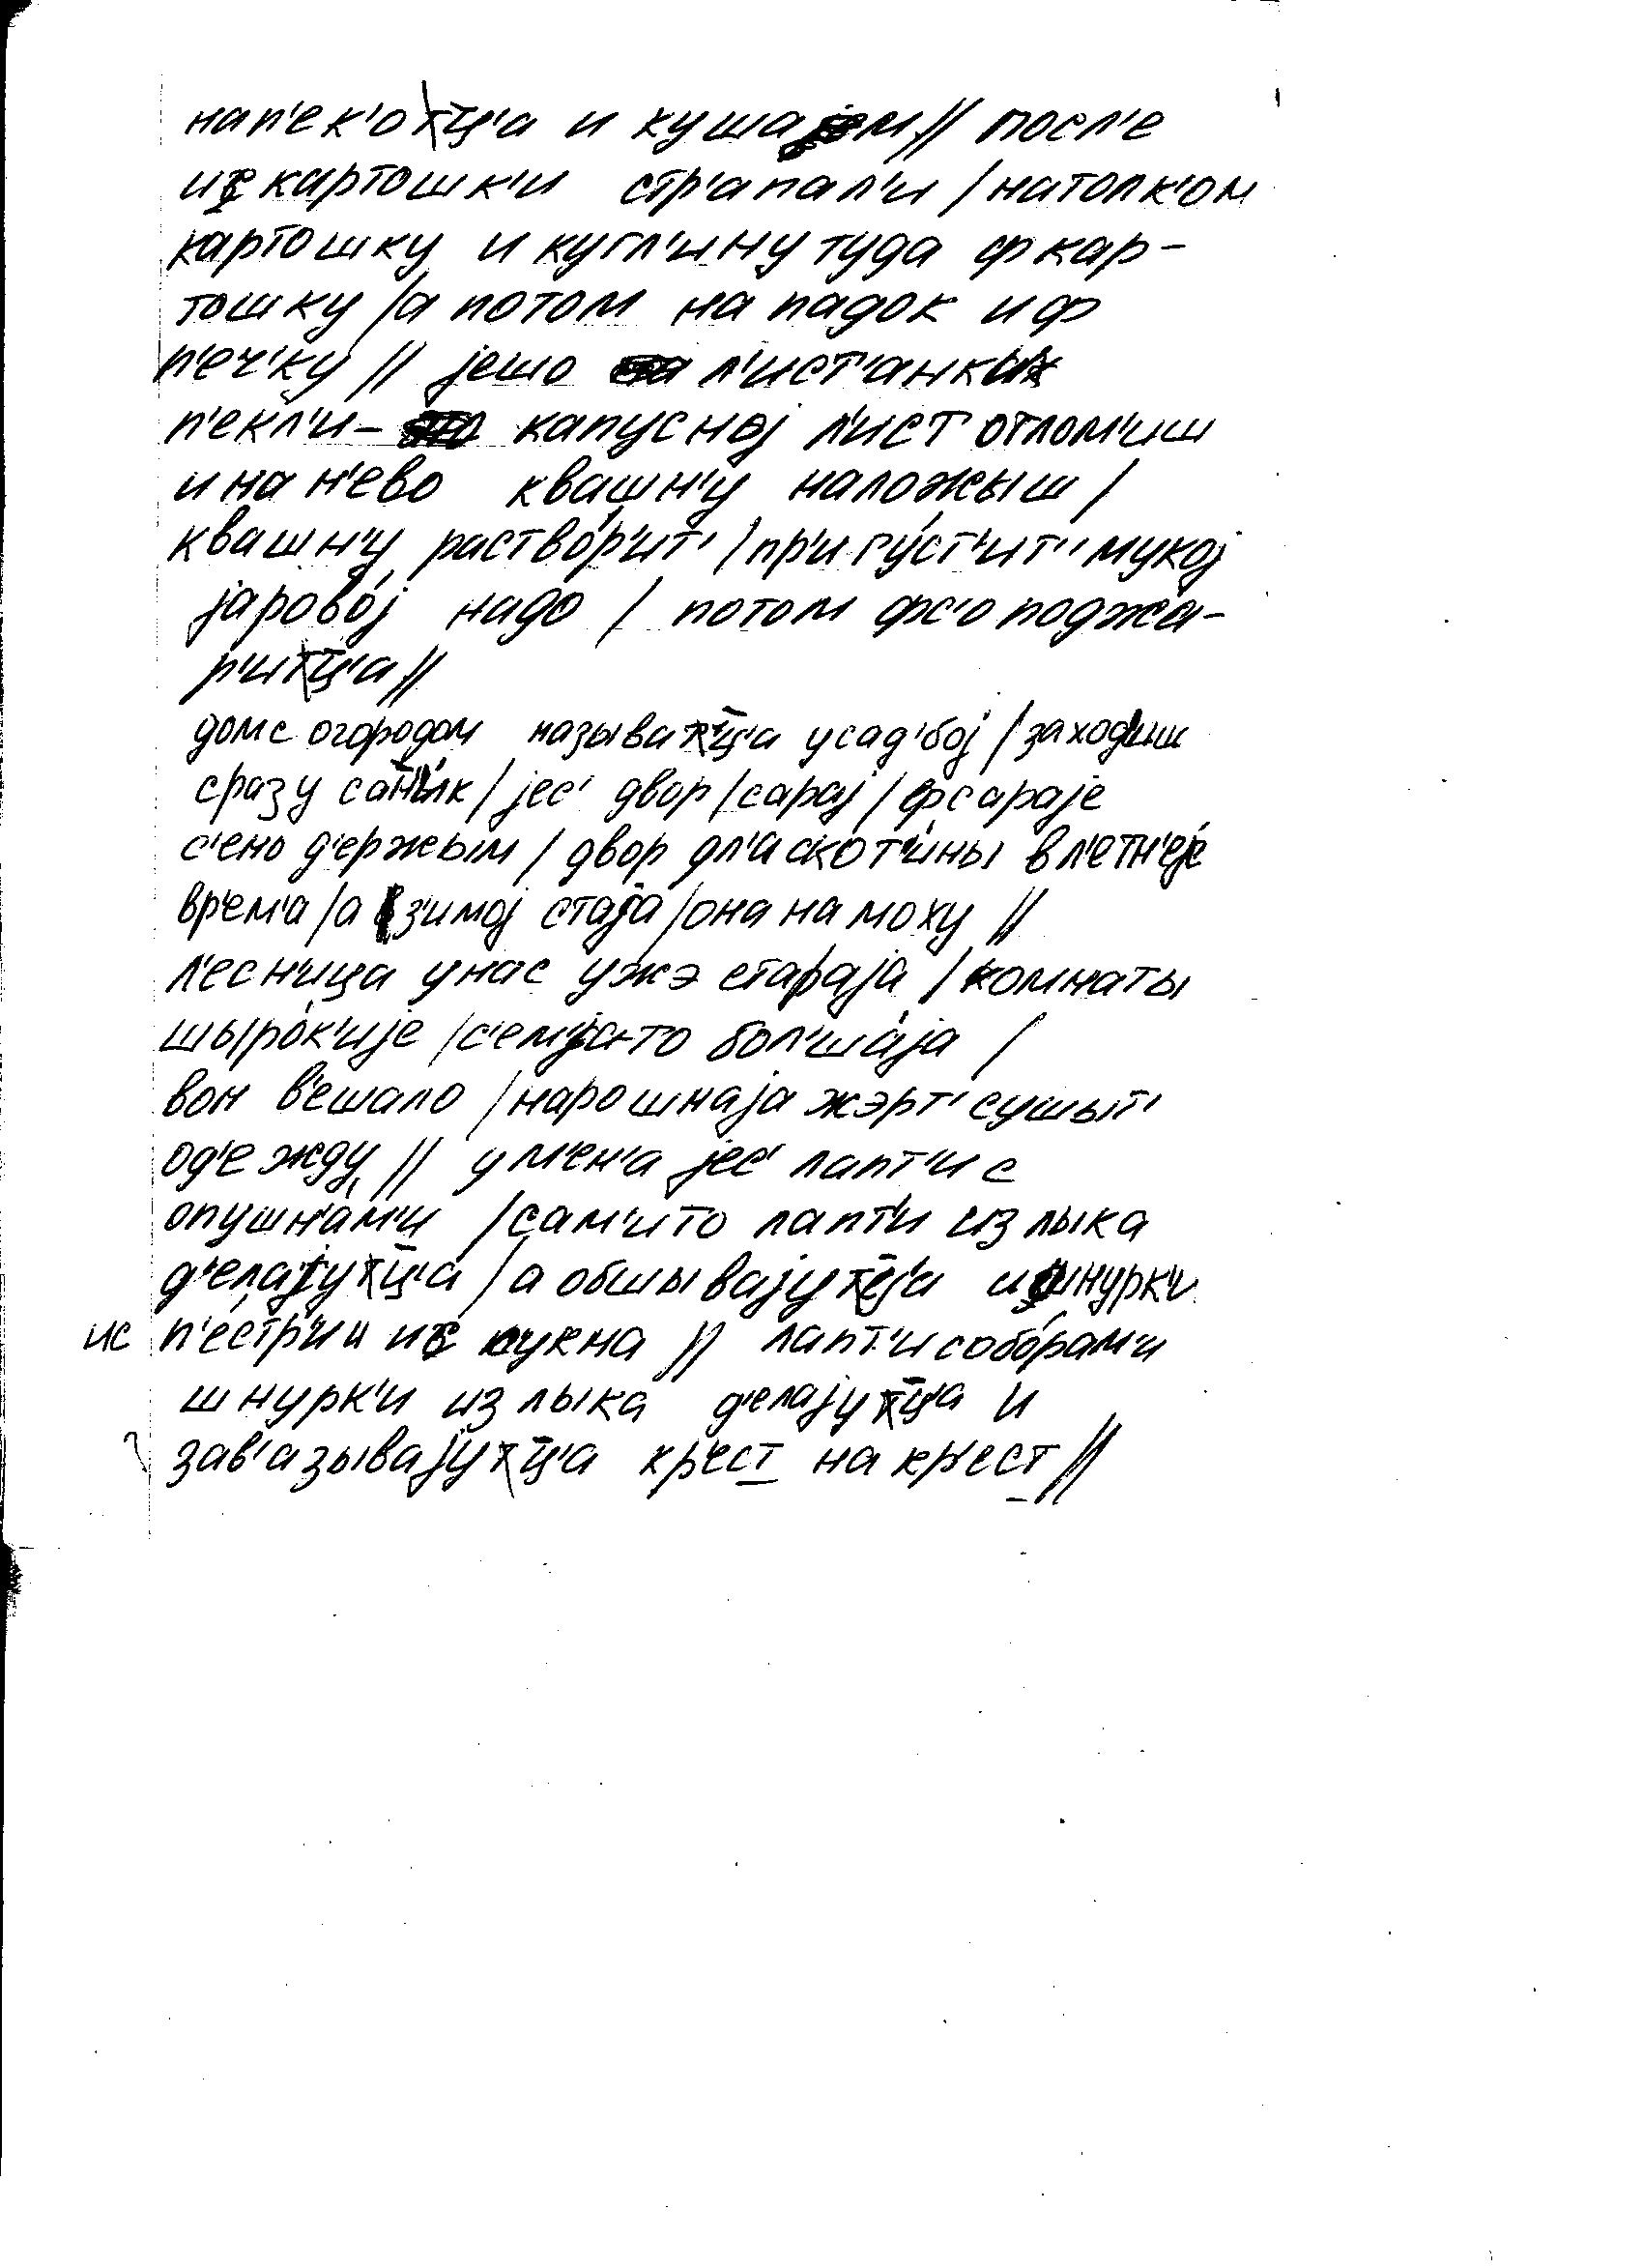 нап'ек'оц̄'а и кушајем // посл'е
ис картошк'и стр'апал'и / натолк'ом
картошку и кугл'ину туда ф кар-
тошку / а потом на падок и ф
п'еч'ку // јешо л'ист'анк'и
п'екл'и – капусној л'ист отлом'иш
и на н'ево квашн'у наложыш /
квашн'у раство́р'ит' / пр'игу́ст'ит' мукој
јарово́ј надо / потом фс'о поджа-
р'иц̄'а //
дом с огородом называц̄'а усад'бој / заход'иш
сразу / јес' двор / сарај / ф сараје
с'ено д'ержым / двор дл'а скот'ины в л'етн'еје
вр'ем'а / а з'имој стаја / она на моху //
л'есн'ица у нас ужэ стараја / комнаты
шыро́к'ије / с'емја-то бол'ша́ја /
вон в'ешало / нарошнаја жэрт' сушыт'
од'ежду // у м'ен'а јес' лапт'и с
опушн'ам'и / сам'и то лапт'и из лыка
д'елајуц̄'а / а обшывајуц̄'а и шнурк'и
ис п'естр'и и ис сукна // лапт'и с обо́рам'и
шнурк'и из лыка д'елајуц̄'а и
зав'азывајуц̄'а кр'ест на кр'ест //